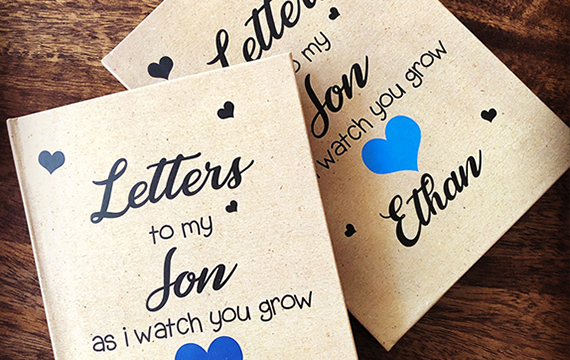 Letters
to my
Son
as i watch you grow
Letters
to my
Son
i watch you grow
Ethan